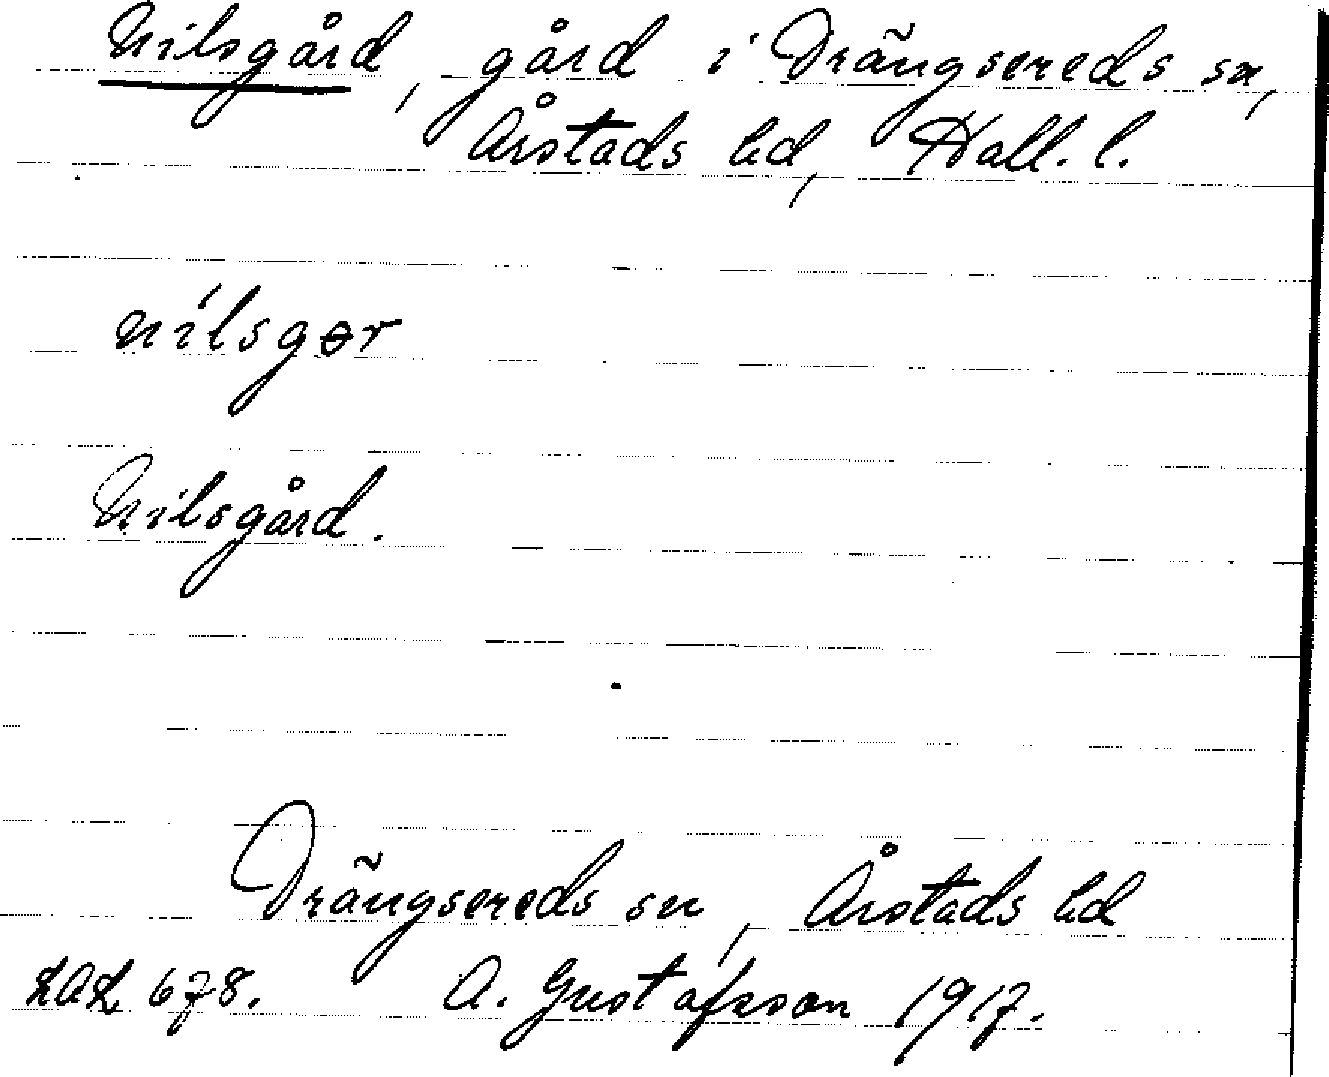 Nilsgård, gård i Drängsereds sn,
Årstads hd, Hall. l.
nílsgɵr
Nilsgård.
Drängsereds sn, Årstads hd
LAL 678. A. Gustafsson 1917.